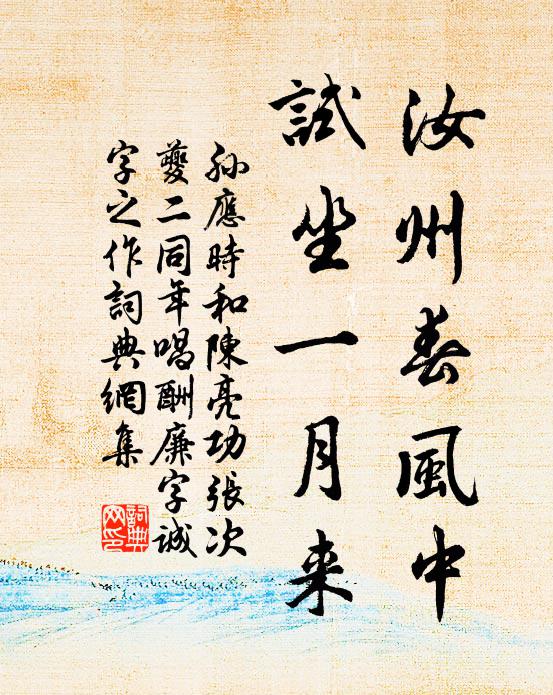 汝州春風中
試坐一月来
孙應時和陳亮功張次
夔二同年唱酬廉字誠
字之作詞典網集
詞典
网印